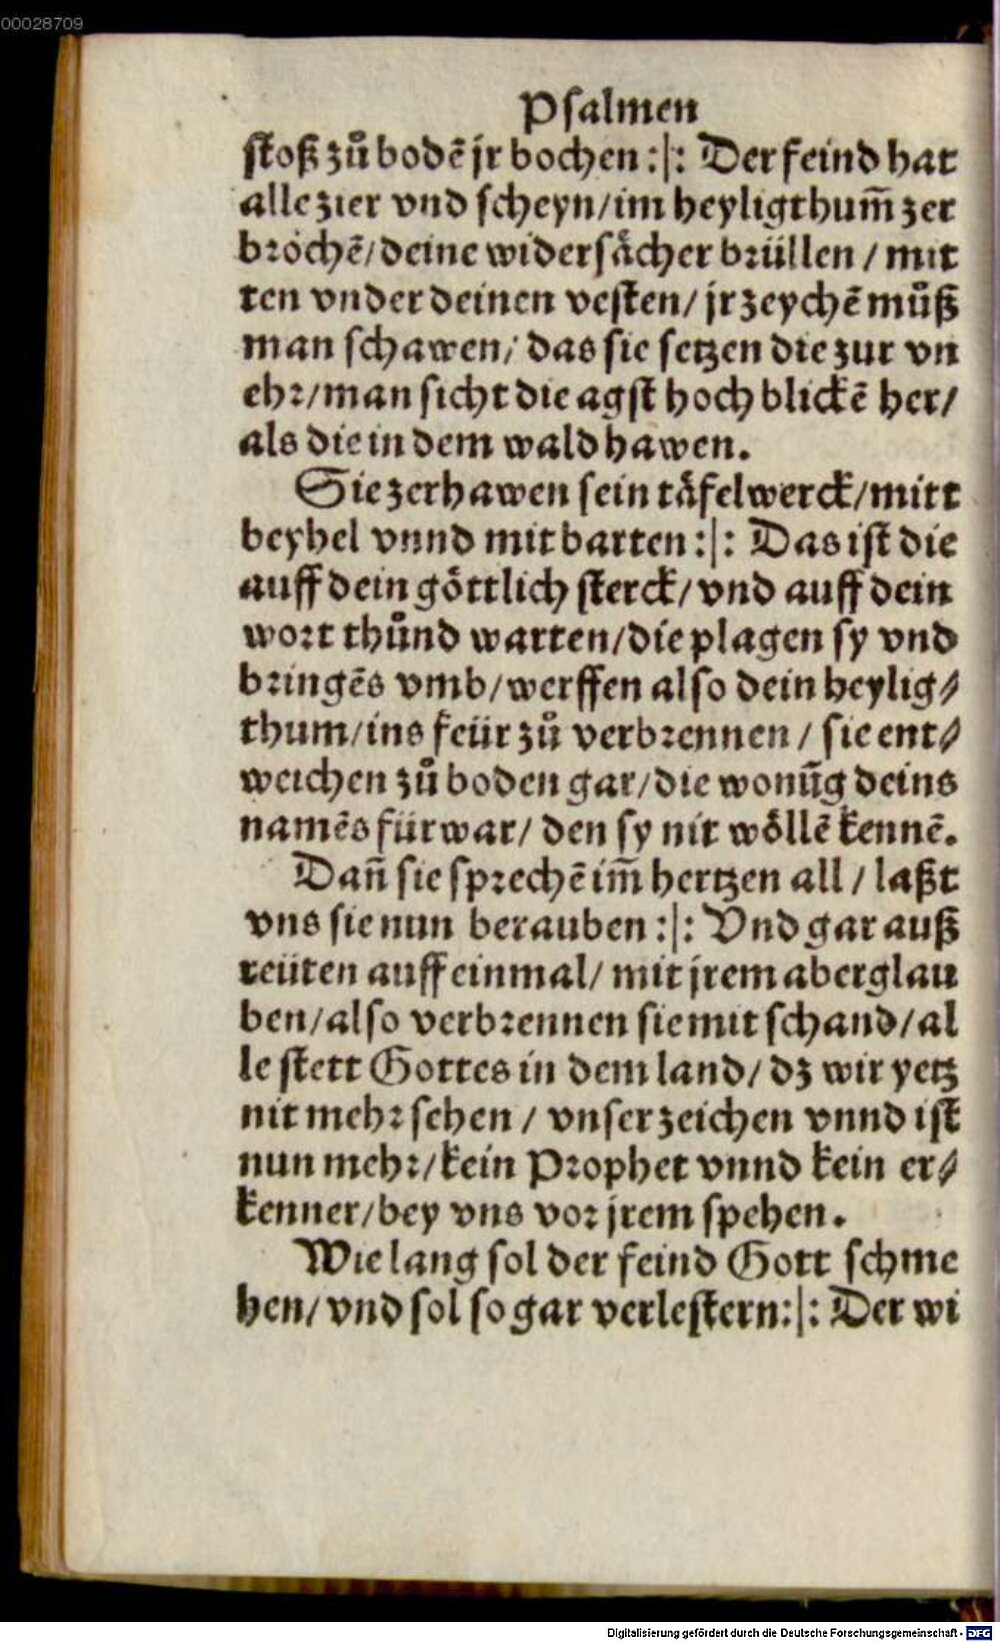 00028709
Psalmen
stoß zů bodẽ jr bochen :|: Der feind hat
alle zier vnd scheyn/im heyligthum̃ zer
bꝛochẽ/deine widersåcher bꝛüllen / mit
ten vnder deinen vesten/ jr zeychẽ můß
man schawen/ das sie setzen die zur vn
ehꝛ/man sicht die agst hoch blickẽ her/
als die in dem wald hawen.
Sie zerhawen sein tåfelwerck/mitt
beyhel vnnd mit barten :|: Das ist die
auff dein göttlich sterck/ vnd auff dein
woꝛt thůnd warten/die plagen sy vnd
bꝛingẽs vmb/werffen also dein heylig⸗
thum/ins feür zů verbꝛennen / sie ent⸗
weichen zů boden gar/die wonũg deins
namẽs fürwar/ den sy nit wöllẽ kennẽ.
Dañ sie spꝛechẽ im̃ hertzen all / laßt
vns sie nun berauben :|: Vnd gar auß
reüten auff einmal/ mit jrem aberglau
ben/also verbꝛennen sie mit schand/al
le stett Gottes in dem land/ dz wir yetz
nit mehꝛ sehen / vnser zeichen vnnd ist
nun mehꝛ/kein Pꝛophet vnnd kein er⸗
kenner/bey vns voꝛ jrem spehen.
Wie lang sol der feind Gott schme
hen/ vnd sol so gar verlestern:|: Der wi
Digitalisierung gefördert durch die Deutsche Forschungsgemeinschaft - DFG